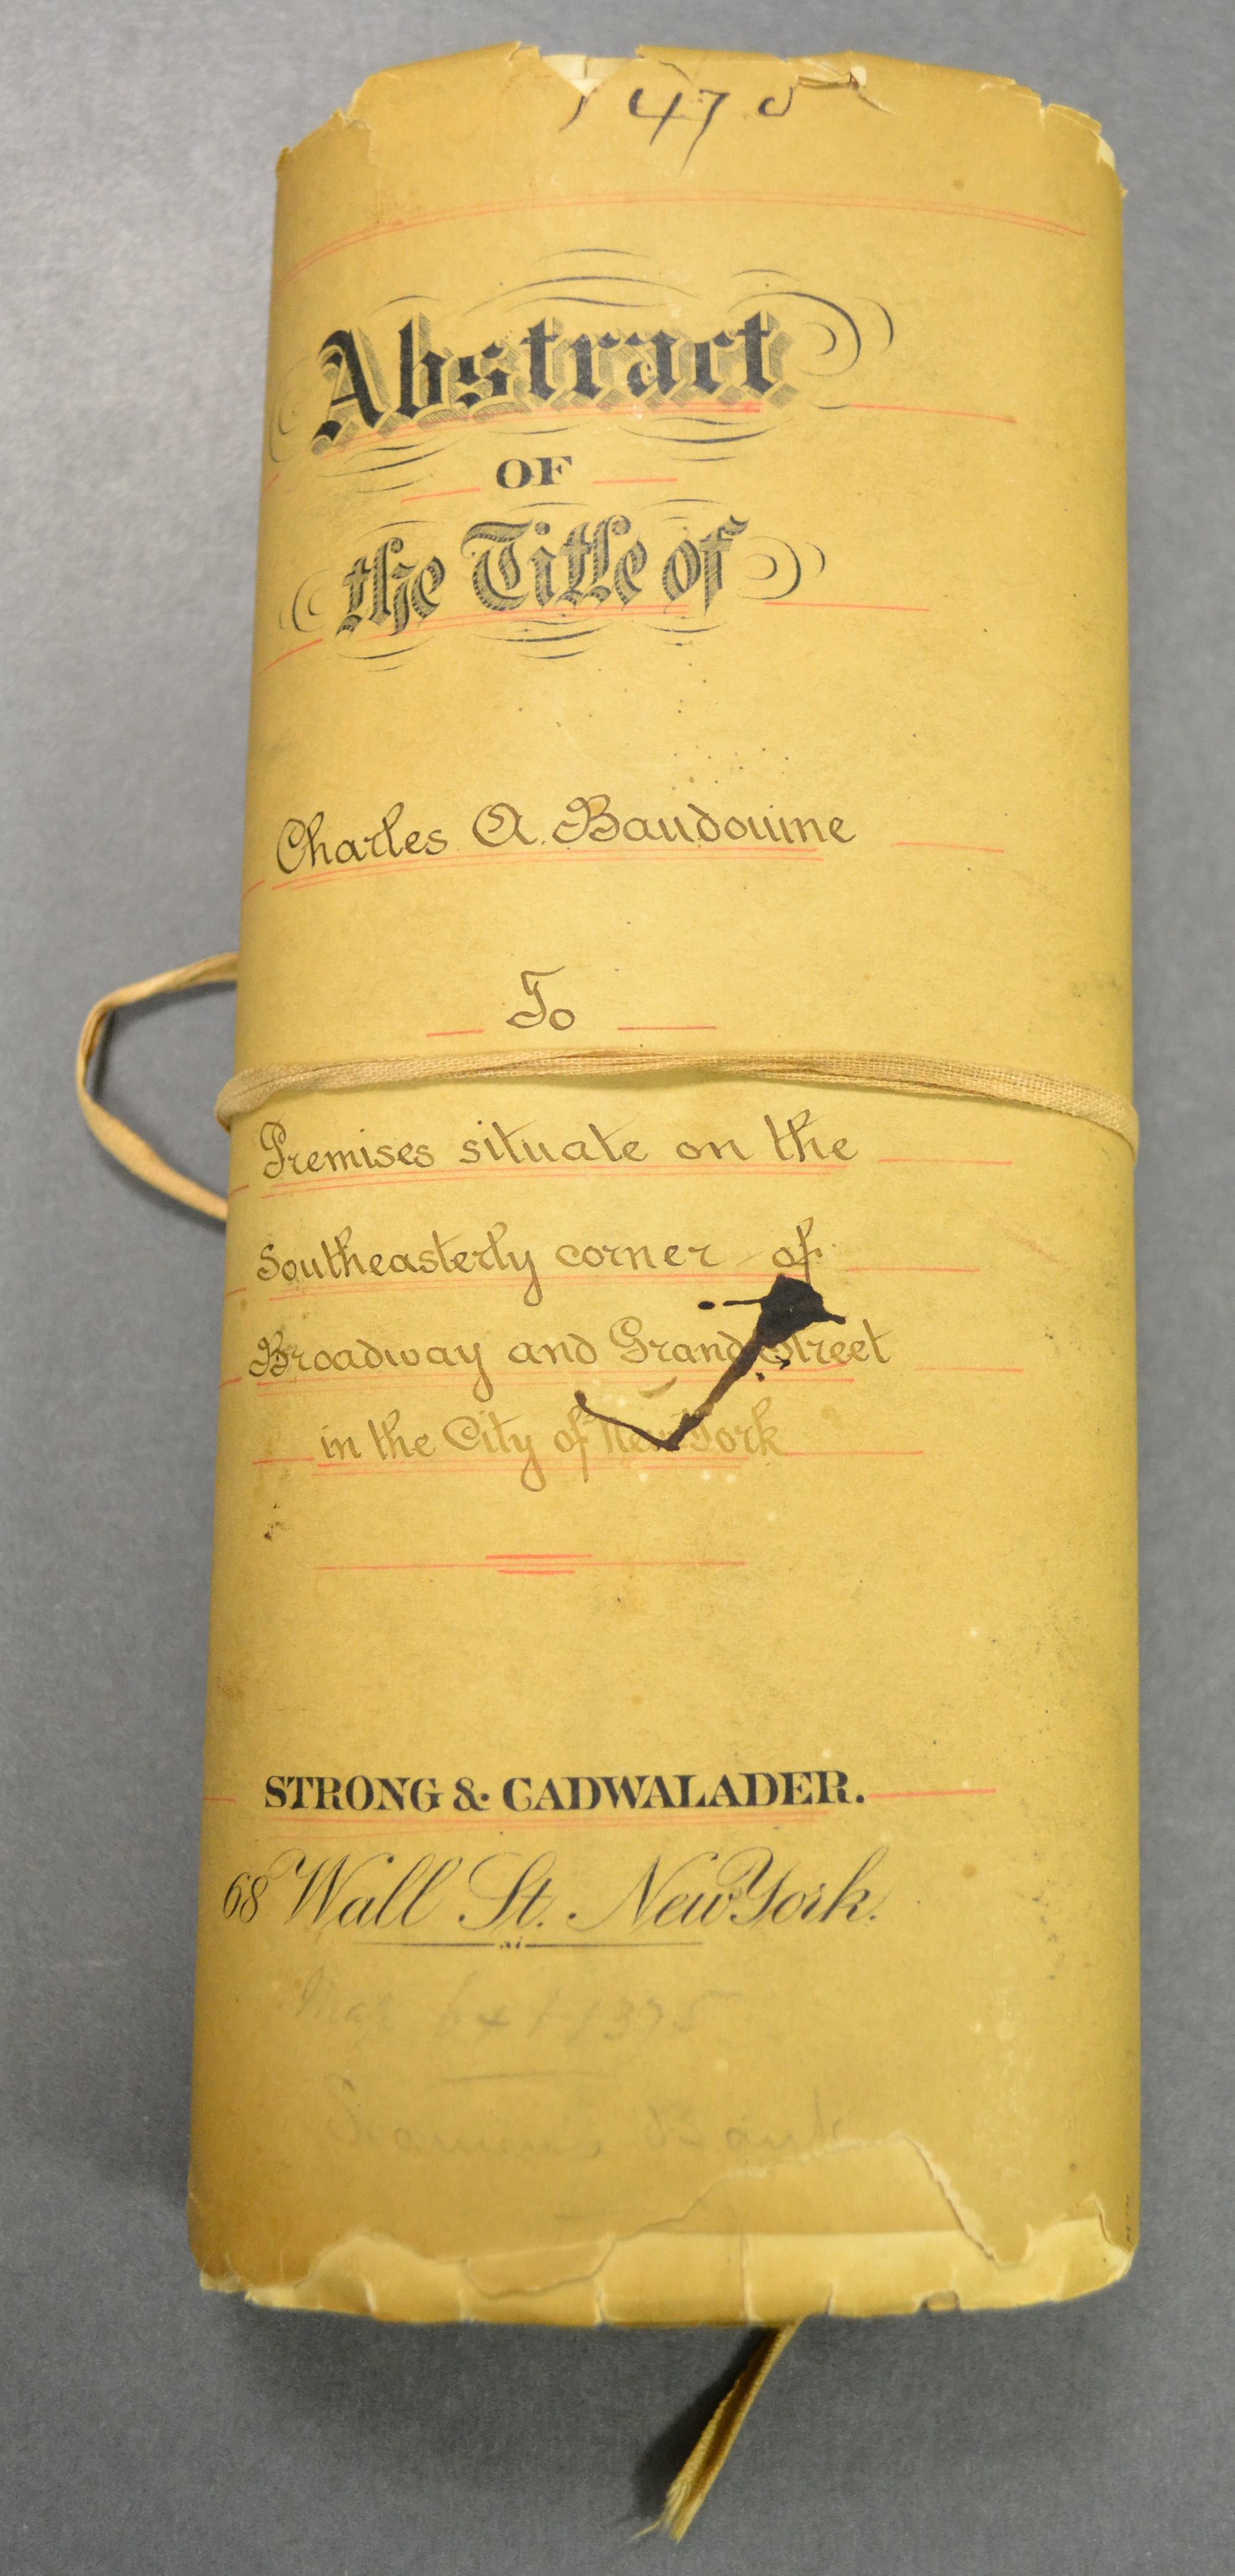 1475
Abstract
OF
the Title of
Charles A. Baudouine
To
Premises situate on the
Southeasterly corner of
Broadway and Grand Street
in the City of New York
STRONG & CADWALADER.
68 Wall St. New York.
Bank